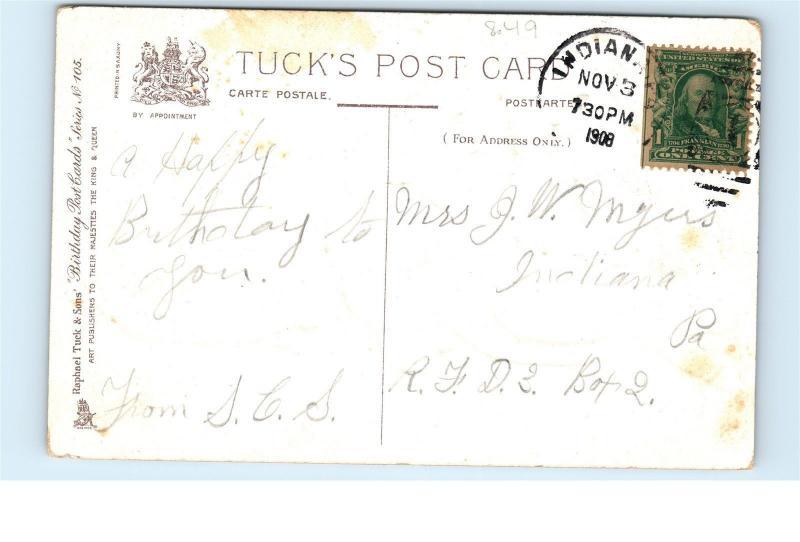 8.49
TUCK'S POST CARD
CARTE POSTALE.
POSTKARTE
(FOR ADDRESS ONLY.)
PRINTED IN SAXONY
BY APPOINTMENT
Raphael Tuck & Sons' "Birthday Post Cards" Series No 105.
ART PUBLISHERS TO THEIR MAJESTIES THE KING & QUEEN
INDIANA
NOV 3
730PM
1908
UNITED STATES OF
AMERICA
1706 FRANKLIN 1790
1 POSTAGE 1
ONE CENT
A Happy
Birthday to
You.
From S. C. S.
Mrs J. W. Myers
Indiana
Pa
R. F. D. 2. Box 2.